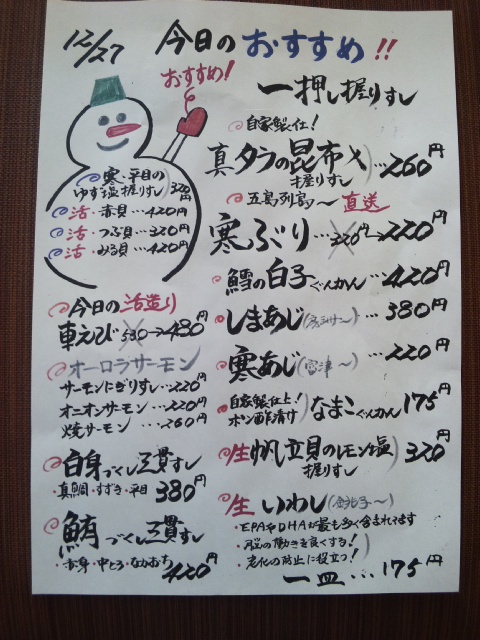 12/27
今日のおすすめ!!
おすすめ!
寒・平目の
ゆず塩握りすし 320円
活・赤貝…420円
活・つぶ貝…320円
活・みる貝…420円
今日の活造り
車えび 580→480円
オーロラサーモン
サーモンにぎりすし…220円
オニオンサーモン…220円
焼サーモン…260円
白身づくし三貫すし
・真鯛・すずき・平目 380円
鮪づくし三貫すし
・赤身・中とろ・ 420円
一押し握りすし
自家製仕!
真タラの昆布〆
握りすし …260円
五島列島〜直送
寒ぶり…320円→220円
鱈の白子ぐんかん…420円
しまあじ …380円
寒あじ(富津〜) …220円
自家製仕上!
ポン酢漬け なまこぐんかん175円
生帆立貝のレモン塩
握りすし 320円
生いわし(銚子〜)
・EPAやDHAが最も多く含まれてます
・脳の働きを良くする!
・老化の防止に役立つ!
一皿…175円